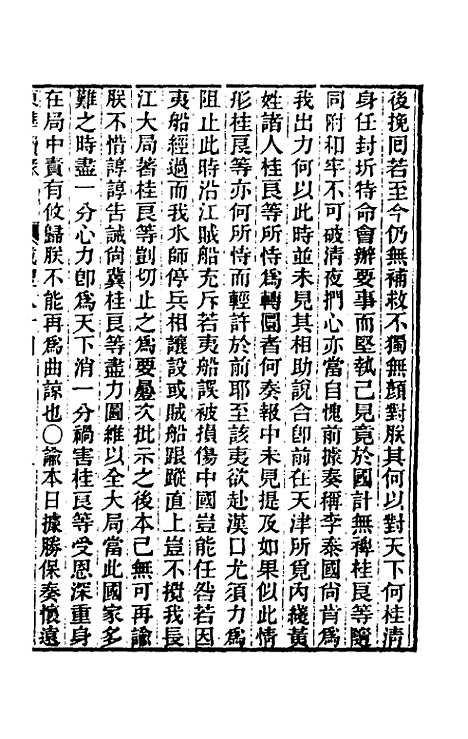 後挽囘若至今仍無補救不獨無顏對朕其何以對天下何桂淸
身任封圻特命會辦要事而堅執己見竟於國計無裨桂良等隨
同附和牢不可破淸夜捫心亦當自愧前據奏稱李泰國尙肯爲
我出力何以此時並未見其相助說合卽前在天津所覓內綫黃
姓諸人桂良等所恃爲轉圜者何奏報中未見提及如果似此情
形桂良等亦何所恃而輕許於前耶至該夷欲赴漢口尤須力爲
阻止此時沿江賊船充斥若夷船誤被損傷中國豈能任咎若因
夷船經過而我水師停兵相讓設或賊船跟蹤直上豈不擾我長
江大局著桂良等剴切止之爲要屢次批示之後本已無可再諭
朕不惜諄諄告誡尙冀桂良等盡力圖維以全大局當此國家多
難之時盡一分心力卽爲天下消一分禍害桂良等受恩深重身
在局中責有攸歸朕不能再爲曲諒也〇諭本日據勝保奏懷遠